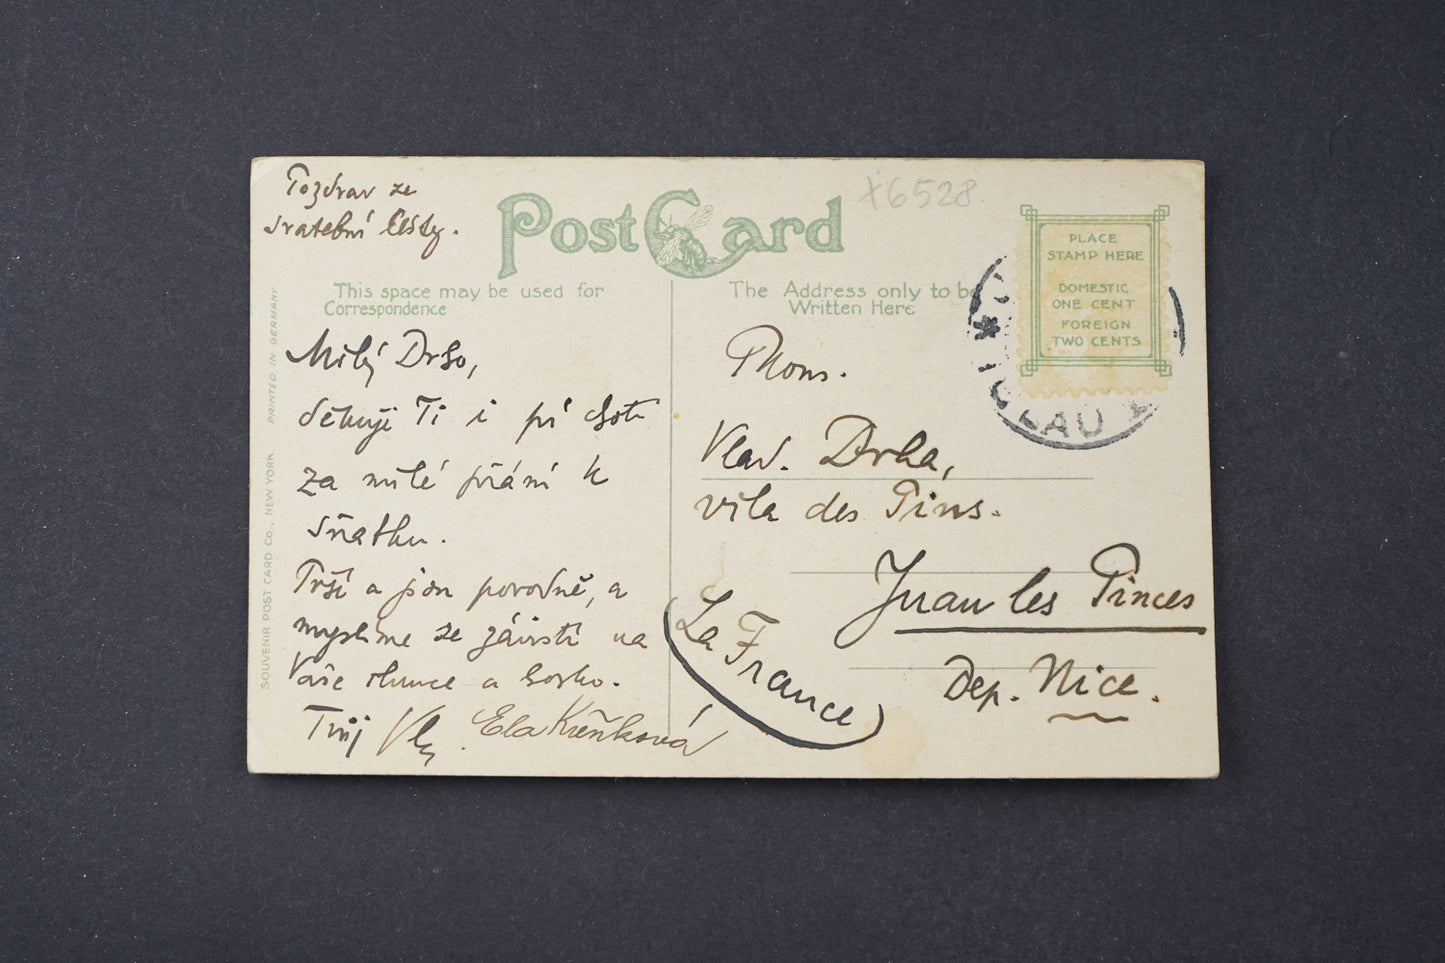 Pozdrav ze
svatební cesty.
Post Card
x6528
PLACE
STAMP HERE
DOMESTIC
ONE CENT
FOREIGN
TWO CENTS
This space may be used for
Correspondence
The Address only to be
Written Here
SOUVENIR POST CARD CO., NEW YORK PRINTED IN GERMANY
Milý Drho,
děkuji Ti i při cestě
za milé přání k
sňatku.
Prší a jsou povodně, a
myslíme se závistí na
Vaše slunce a horko.
Tvůj
Ela Křenková
Mons.
Vlad. Drha,
vila des Pins.
Juan les Pinces
Dep. Nice.
(La France)